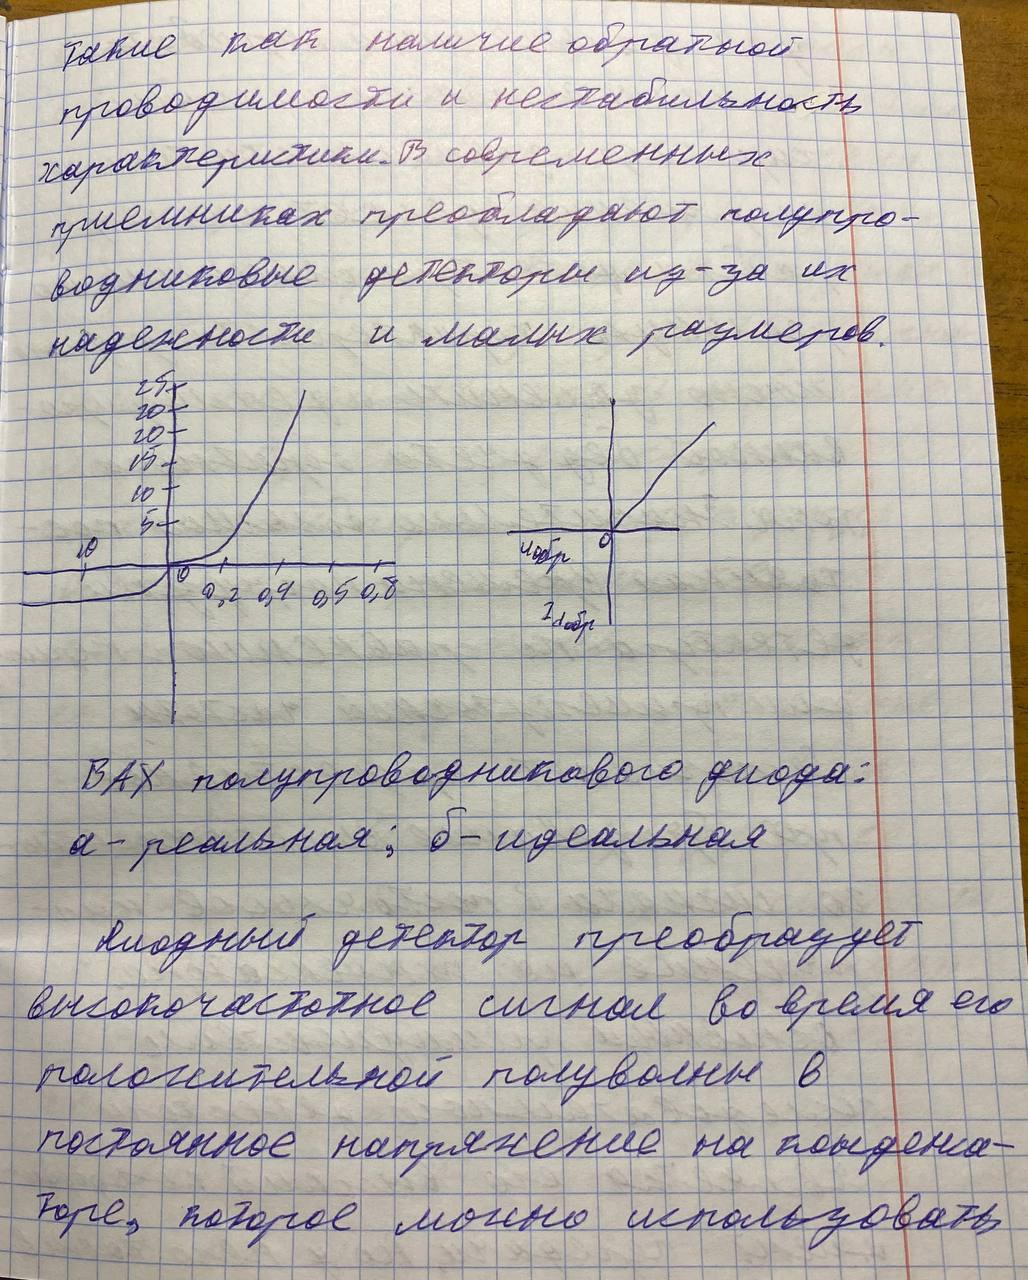 такие как наличие обратной
проводимости и нестабильность
характеристики. В современных
приемниках преобладают полупро-
водниковые детекторы из-за их
надежности и малых размеров.
25
20
20
15
10
5
10
0
0,2 0,4 0,5 0,8
Uобр
0
Idобр
ВАХ полупроводникового диода:
а - реальная; б - идеальная
Диодный детектор преобразует
высокочастотное сигнал во время его
положительной полуволны в
постоянное напряжение на конденса-
торе, которое можно использовать